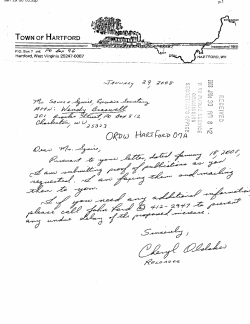 TOWN OF HARTFORD
Hartford, West Virginia 25247-0067
January 29, 2008
Ms. Squire, Executive Secretary
Attn: Wendy
201 Brooks Street, PO Box 812
Charleston, WV
25323
RECEIVED
ORDW HARTFORD 07A
Dear Ms. Squire,
Pursuant to your letter, dated January 18, 2008,
I am submitting proof of publication as you
requested. I am faxing them and mailing
them to you.
If you need any additional information
please call John Ford @ 412-2947 to prevent
any undue delay of the proposed increase.
Sincerely,
Cheryl
Recorder